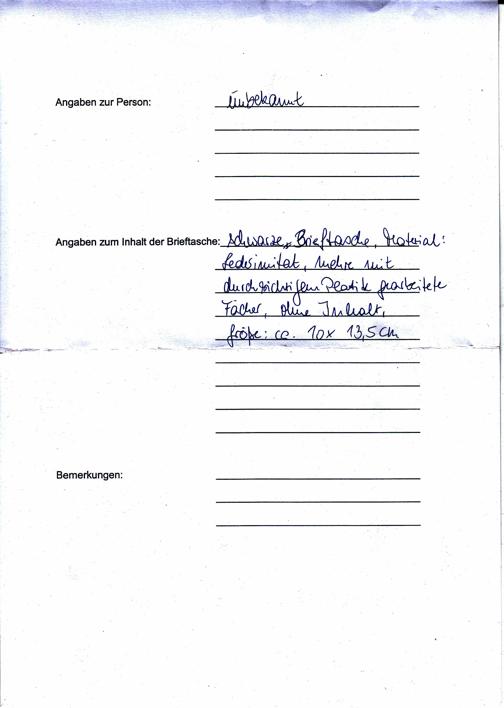 Angaben zur Person: unbekannt
Angaben zum Inhalt der Brieftasche: schwarze Brieftasche, Material:
Lederimitat, mehre mit
durchsichtigem Plastik gearbeitete
Fächer, ohne Inhalt,
Größe: ca. 10x 13,5cm
Bemerkungen: